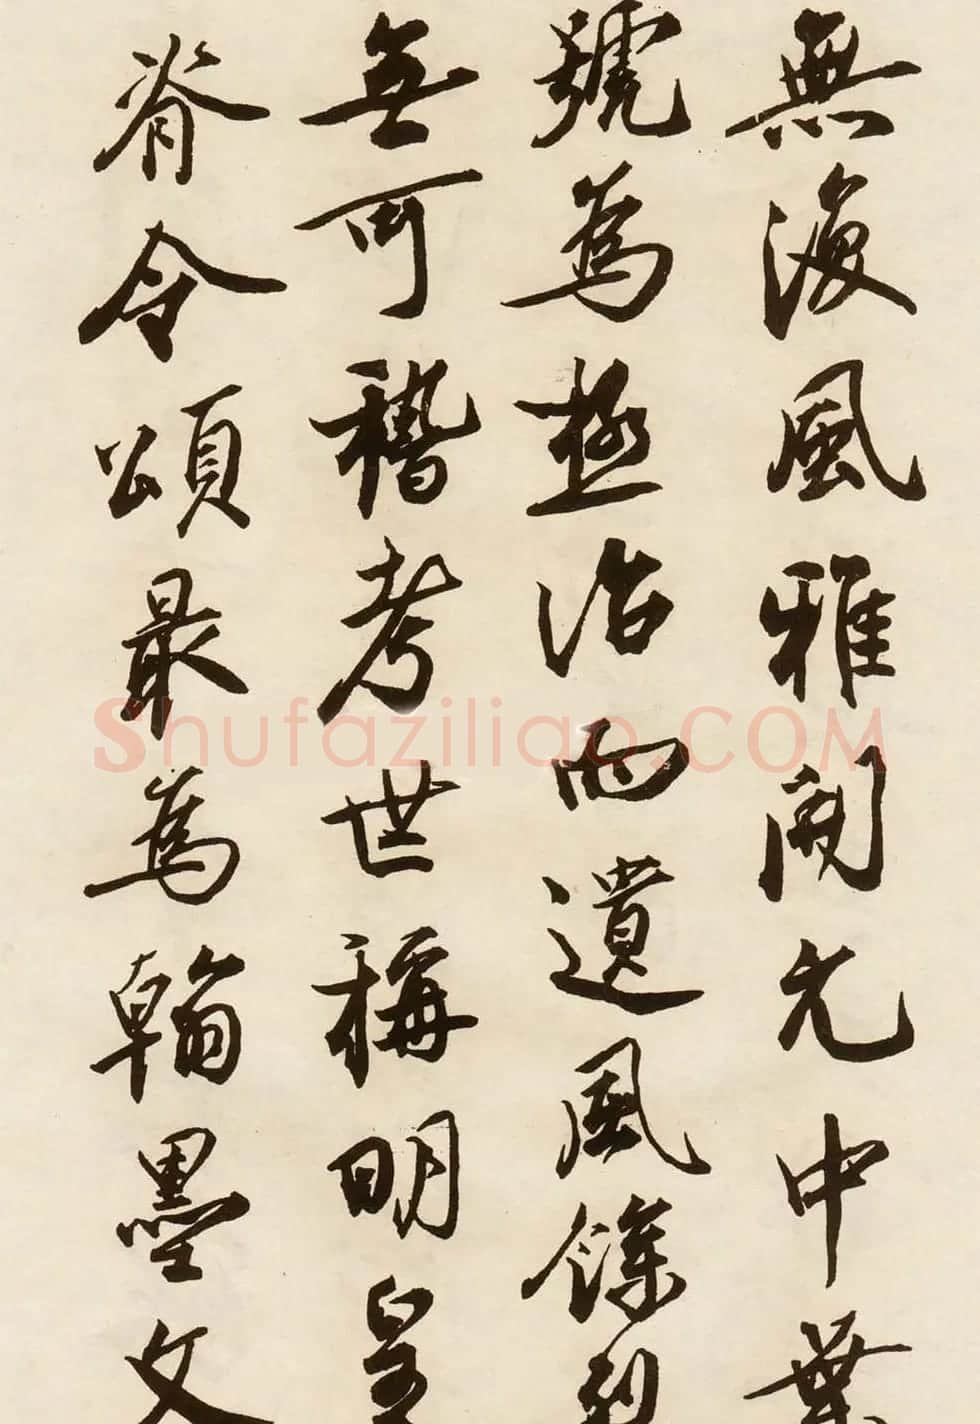 無復風雅開元中葉
號為極治而遺風餘烈
無可稽考世稱明皇
脊令頌最為翰墨文
Shufaziliao.COM